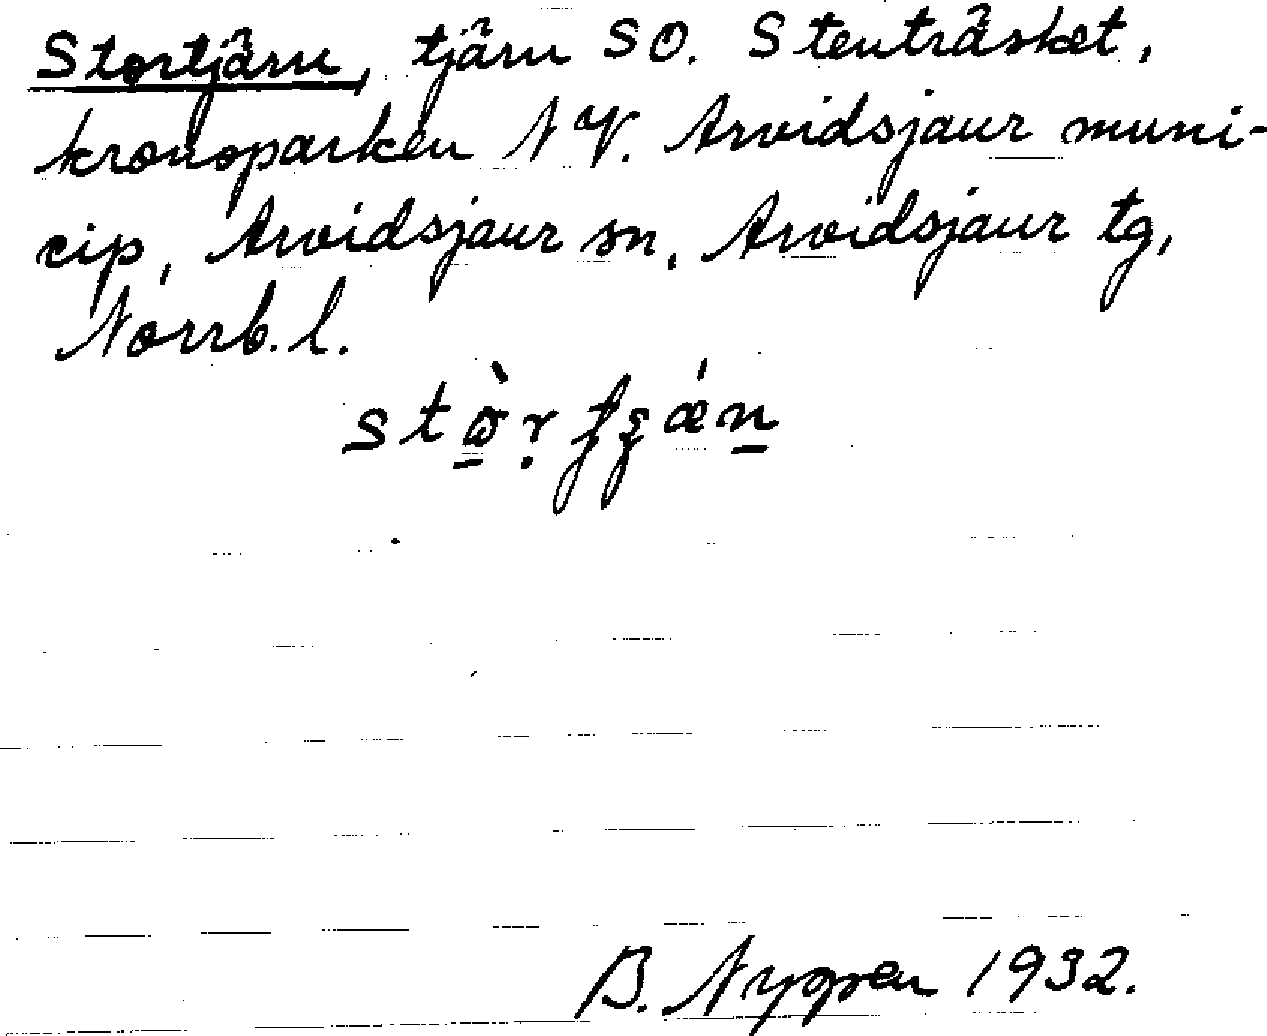 Stortjärn, tjärn SO. Stenträsket,
kronoparken NV. Arvidsjaur muni-
cip, Arvidsjaur sn, Arvidsjaur tg,
Norrb. l.
B. Nygren 1932.